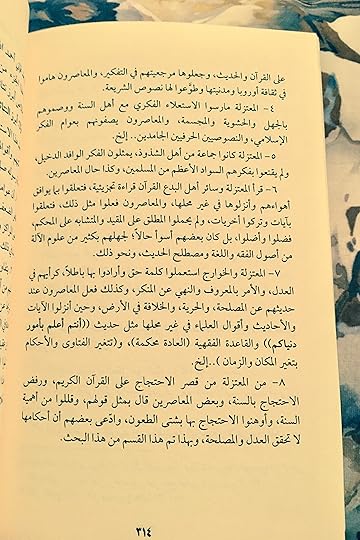 على القرآن والحديث، وجعلوها مرجعيتهم في التفكير، والمعاصرون هاموا
في ثقافة أوروبا ومدنيتها وطوّعوا لها نصوص الشريعة.
٤ - المعتزلة مارسوا الاستعلاء الفكري مع أهل السنة ووصموهم
بالجهل والحشوية والمجسمة، والمعاصرون يصفونهم بعوام الفكر
الإسلامي، والنصوصيين الحرفيين الجامدين.. إلخ.
٥ - المعتزلة كانوا جماعة من أهل الشذوذ، يمثلون الفكر الوافد الدخيل،
ولم يقتنعوا بفكرهم السواد الأعظم من المسلمين، وكذا حال المعاصرين.
٦ - قرأ المعتزلة وسائر أهل البدع القرآن قراءة تجزيئية، فتعلقوا بما يوافق
أهواءهم وأنزلوها في غير محلها، والمعاصرون فعلوا مثل ذلك، فتعلقوا
بآيات وتركوا أخريات، ولم يحملوا المطلق على المقيد والمتشابه على المحكم،
فضلوا وأضلوا، بل كان بعضهم أسوأ حالاً؛ لجهلهم بكثير من علوم الآلة
من أصول الفقه واللغة ومصطلح الحديث، ونحو ذلك.
٧- المعتزلة والخوارج استعملوا كلمة حق وأرادوا بها باطلاً، كرأيهم في
العدل، والأمر بالمعروف والنهي عن المنكر، وكذلك فعل المعاصرون عند
حديثهم عن المصلحة، والحرية، والخلافة في الأرض، وحين أنزلوا الآيات
والأحاديث وأقوال العلماء في غير محلها مثل حديث ((أنتم أعلم بأمور
دنياكم)) والقاعدة الفقهية (العادة محكمة)، و(تتغير الفتاوى والأحكام
بتغير المكان والزمان )..إلخ.
٨ - من المعتزلة من قصر الاحتجاج على القرآن الكريم، ورفض
الاحتجاج بالسنة، وبعض المعاصرين قال بمثل قولهم، وقللوا من أهمية
السنة، وأوهنوا الاحتجاج بها بشتى الطعون، وادّعى بعضهم أن أحكامها
لا تحقق العدل والمصلحة، وبهذا تم هذا القسم من هذا البحث.
٣١٤